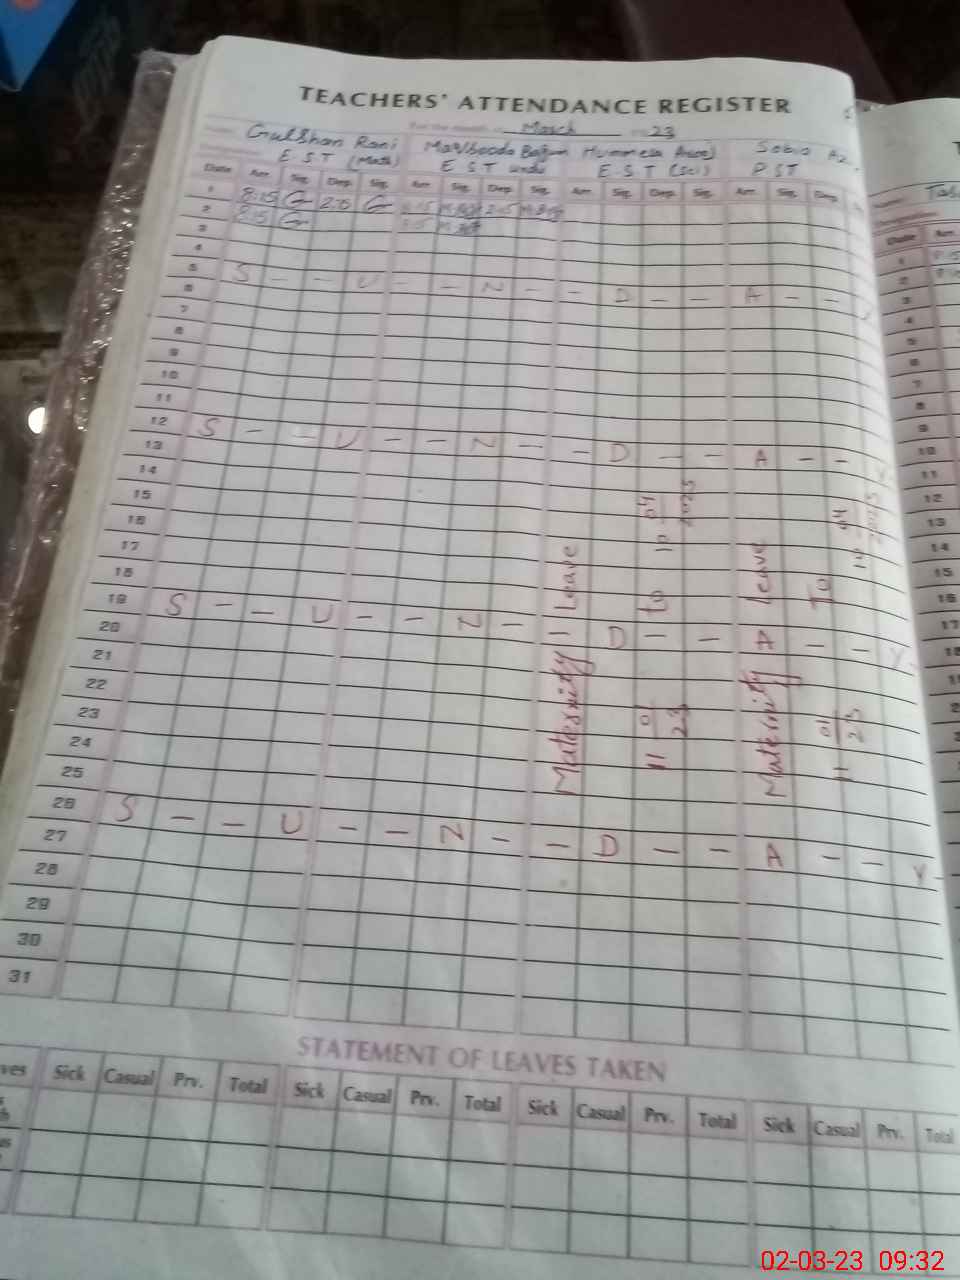 TEACHERS' ATTENDANCE REGISTER
For the month of March 23
Gulshan Rani
E S T (Math)
E S T Urdu
E S T (Sci)
Sabia Az
P S T
Date Arr. Sig. Dep. Sig. Arr. Sig. Dep. Sig. Arr. Sig. Dep. Sig. Arr. Sig. Dep.
1 8:15 G 2:15 G 8:15 2:15
2 8:15 G
3
4
5 S - - U - - N - - D - - A - -
6
7
8
9
10
11
12 S - - U - - N - - D - - A - - Y
13
14
15
16
17
18
19 S - - U - - N - - D - - A - - Y
20
21
22
23
24
25
26 S - - U - - N - - D - - A - - Y
27
28
29
30
31
Maternity Leave
11 01 23 to 10 04 2023
Maternity leave
11 01 23 To 10 04 2023
STATEMENT OF LEAVES TAKEN
ves Sick Casual Prv. Total Sick Casual Prv. Total Sick Casual Prv. Total Sick Casual Prv. Total
Date Arr.
1
2
3
4
5
6
7
8
9
10
11
12
13
14
15
16
17
18
02-03-23 09:32